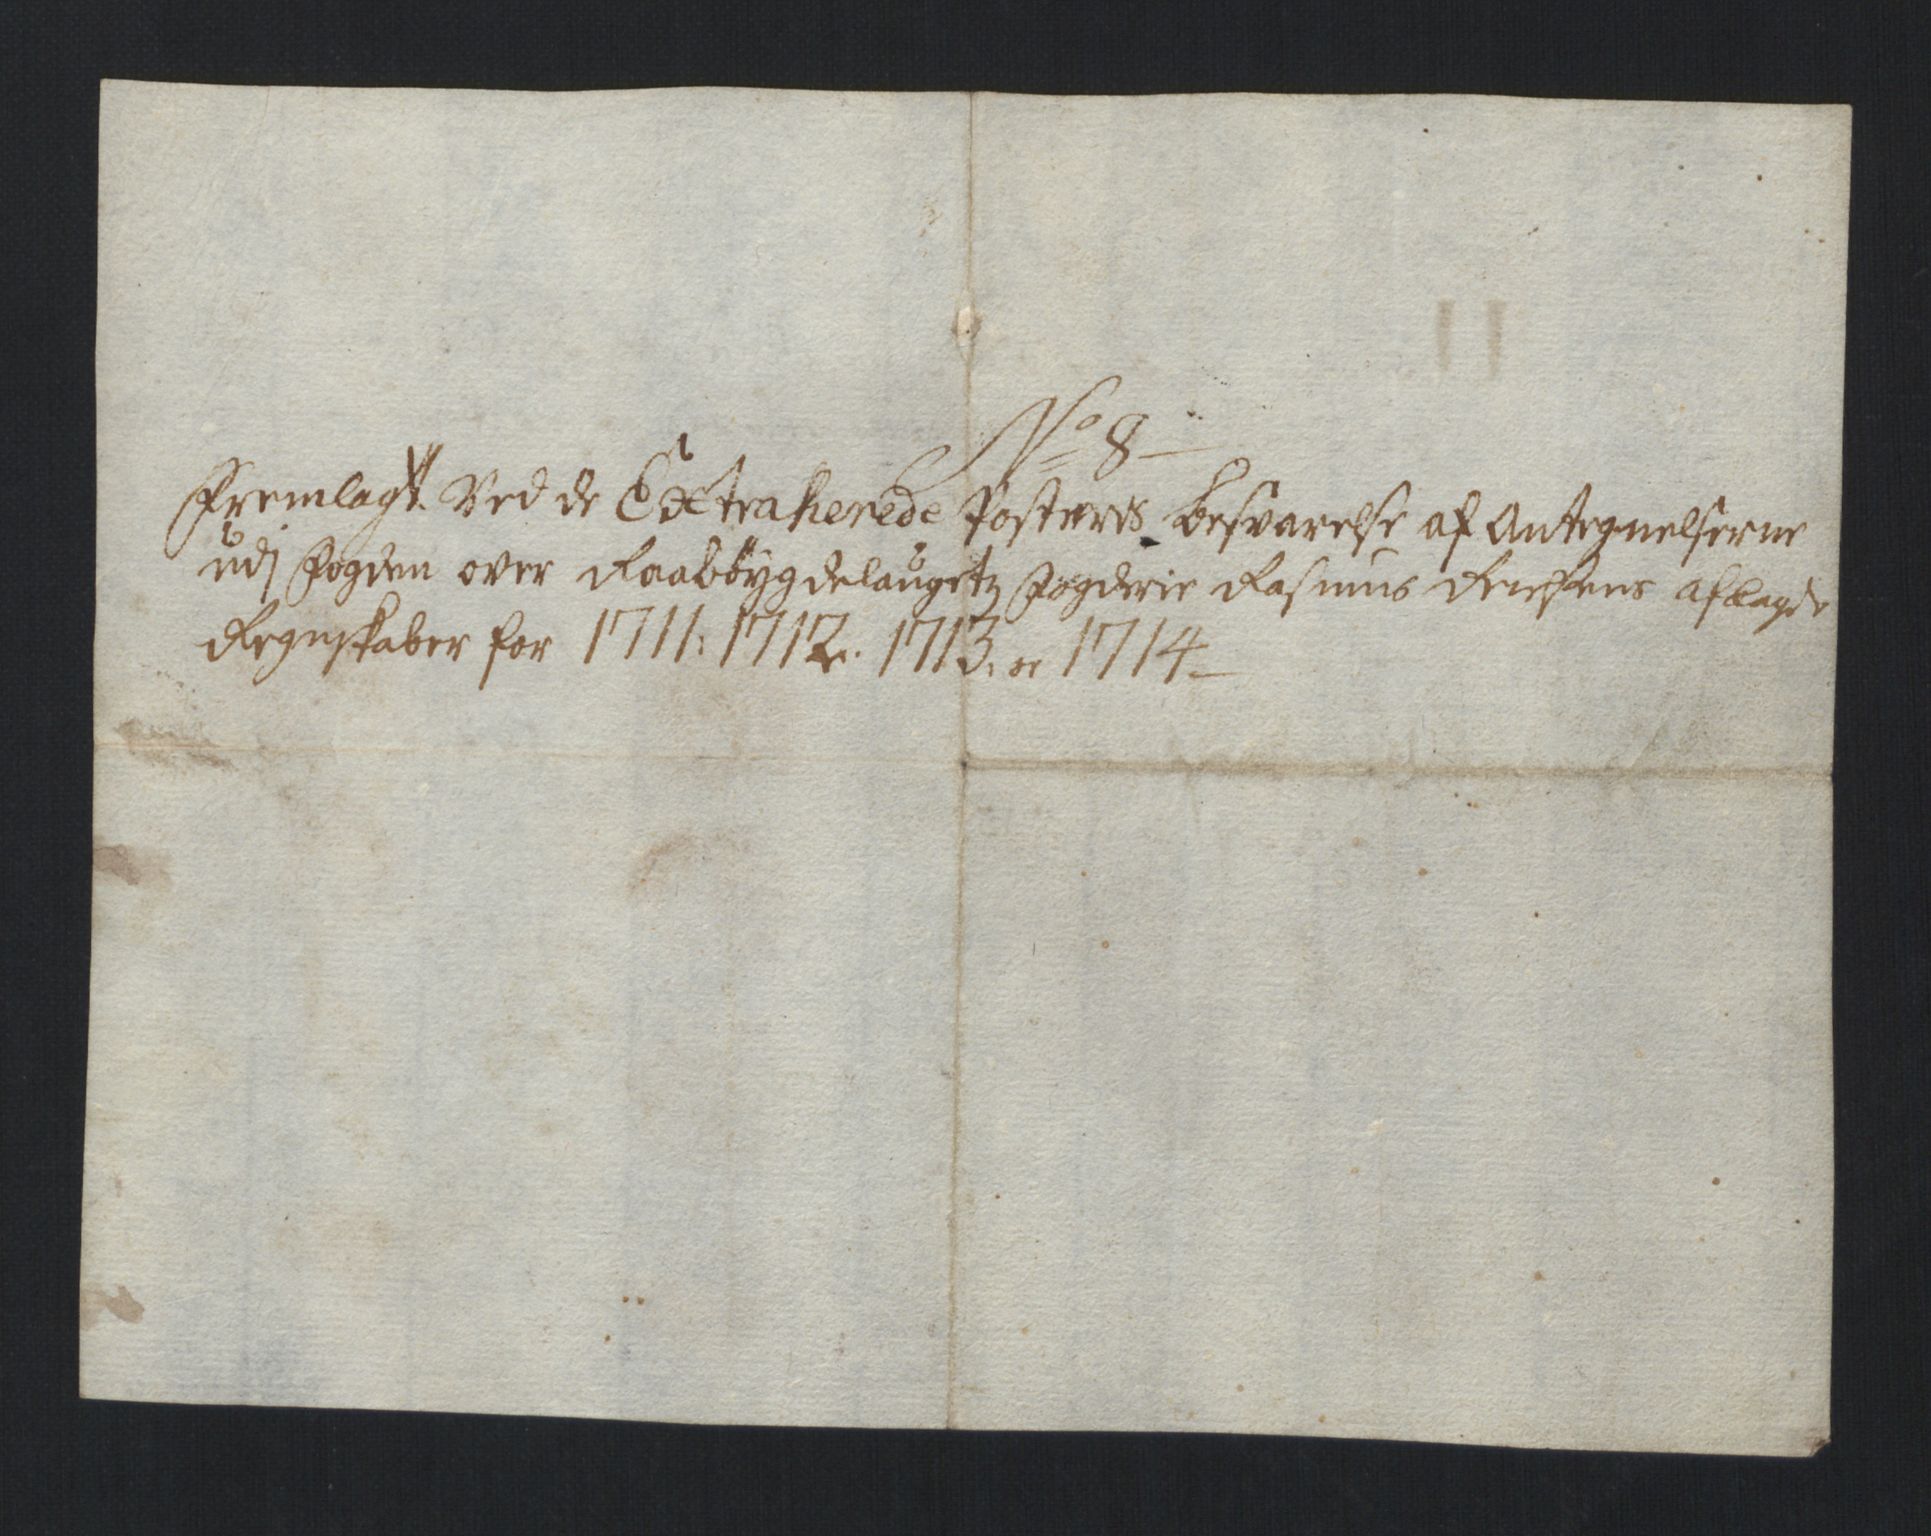 No 8
Fremlagt Ved de Extraherede Posters besvarelse af Antegnelserne
udj Fogden over Raabÿgdelaugetz Fogderie Rasmus aflagde
Regnskaber for 1711: 1712. 1713. oc 1714